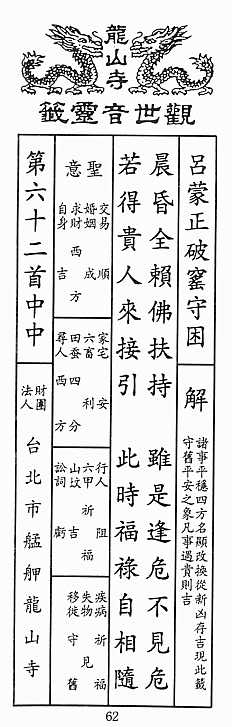 龍山寺
觀世音靈籤
呂蒙正破窰守困
解
諸事平穩四方名顯改換從新凶存吉現此籤
守舊平安之象凡事遇貴則吉
晨昏全賴佛扶持 雖是逢危不見危
若得貴人來接引 此時福祿自相隨
聖意
交易 順
婚姻 成
求財 西方
自身 吉
家宅 安
六畜 利
田蚕 四分
尋人 西方
行人 阻
六甲 祈福
山坟 吉
訟詞 虧
疾病 祈福
失物 見
移徙 守舊
第六十二首中中
財團
法人
台北市艋舺龍山寺
62